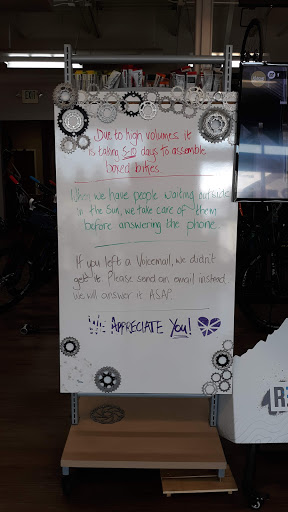 Due to high volumes it
is taking 5-10 days to assemble
boxed bikes.
When we have people waiting outside
in the Sun, we take care of them
before answering the phone
If you left a Voicemail, we didn't
get it. Please send an email instead.
We will answer it ASAP.
We APPRECIATE You!